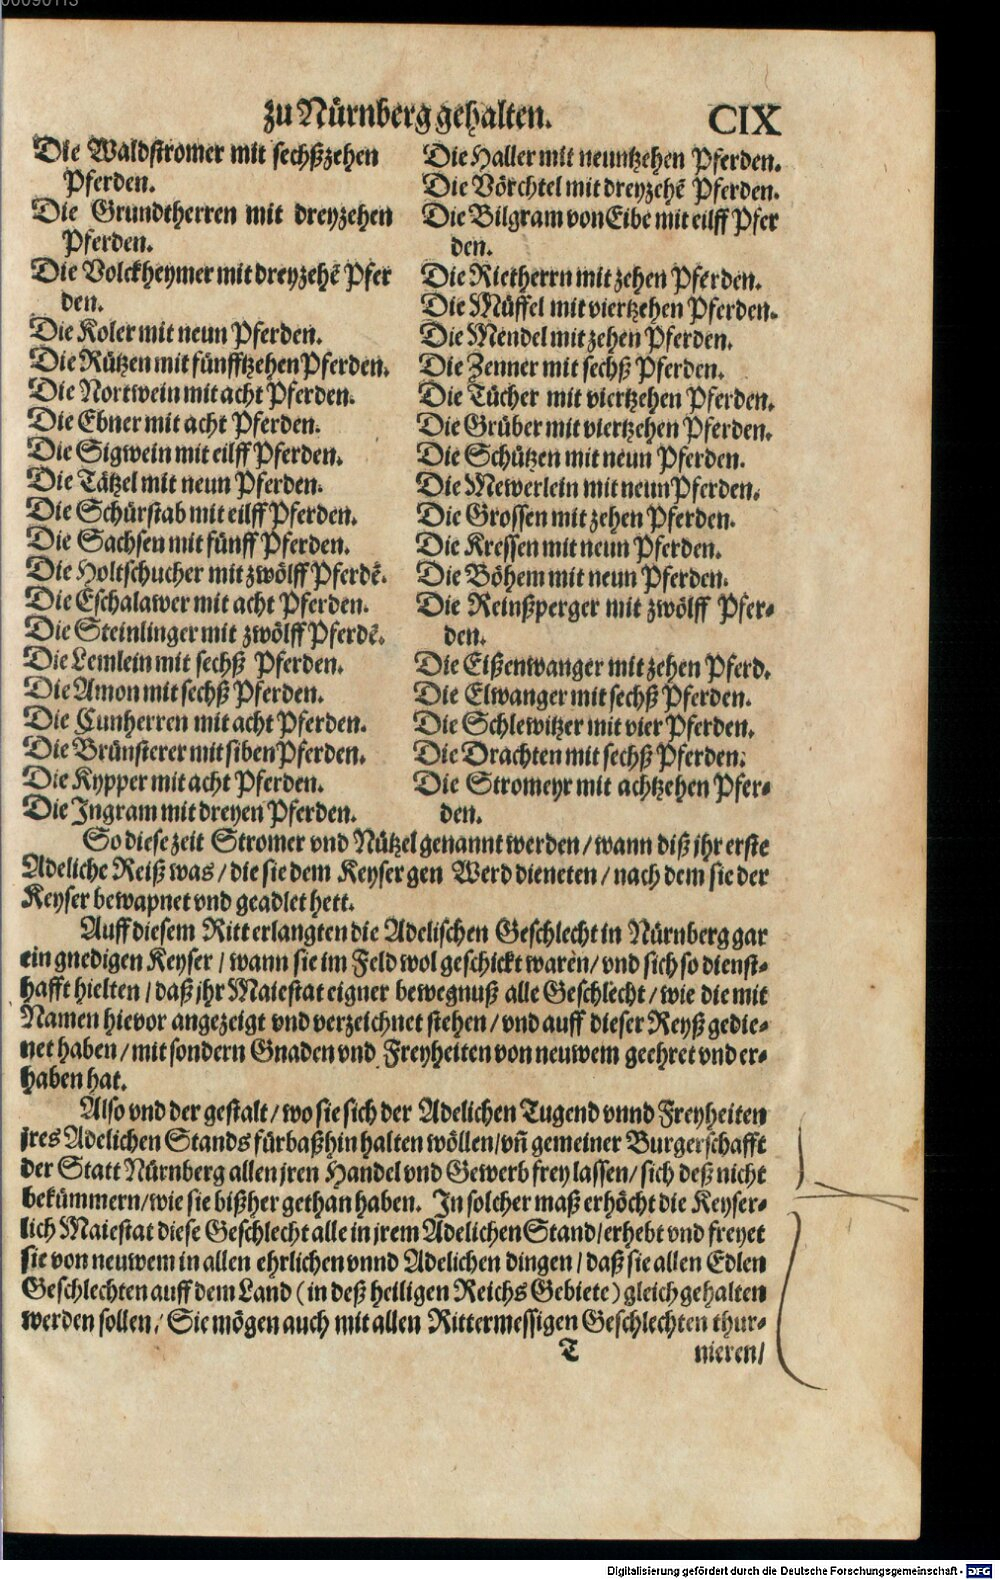 zu Nürnberg gehalten. CIX
Die Waldstromer mit sechßzehen
Pferden.
Die Grundtherren mit dreyzehen
Pferden.
Die Volckheymer mit dreyzehē Pfer
den.
Die Koler mit neun Pferden.
Die Rützen mit fünfftzehen Pferden.
Die Nortwein mit acht Pferden.
Die Ebner mit acht Pferden.
Die Sigwein mit eilff Pferden.
Die Tätzel mit neun Pferden.
Die Schürstab mit eilff Pferden.
Die Sachsen mit fünff Pferden.
Die Holtschucher mit zwölff Pferdē.
Die Eschalawer mit acht Pferden.
Die Steinlinger mit zwölff Pferdē.
Die Lemlein mit sechß Pferden.
Die Amon mit sechß Pferden.
Die Cunherren mit acht Pferden.
Die Brünsterer mit siben Pferden.
Die Kypper mit acht Pferden.
Die Ingram mit dreyen Pferden.
Die Haller mit neuntzehen Pferden.
Die Vörchtel mit dreyzehē Pferden.
Die Bilgram von Eibe mit eilff Pfer
den.
Die Rietherrn mit zehen Pferden.
Die Müffel mit viertzehen Pferden.
Die Mendel mit zehen Pferden.
Die Zenner mit sechß Pferden.
Die Tücher mit viertzehen Pferden.
Die Grüber mit viertzehen Pferden.
Die Schützen mit neun Pferden.
Die Mewerlein mit neun Pferden.
Die Grossen mit zehen Pferden.
Die Kressen mit neun Pferden.
Die Böhem mit neun Pferden.
Die Reinßperger mit zwölff Pfer-
den.
Die Eißenwanger mit zehen Pferd.
Die Elwanger mit sechß Pferden.
Die Schlewitzer mit vier Pferden.
Die Drachten mit sechß Pferden.
Die Stromeyr mit achtzehen Pfer-
den.
So diese zeit Stromer vnd Nützel genannt werden / wann diß jhr erste
Adeliche Reiß was / die sie dem Keyser gen Werd dieneten / nach dem sie der
Keyser bewapnet vnd geadlet hett.
Auff diesem Ritt erlangten die Adelischen Geschlecht in Nürnberg gar
ein gnedigen Keyser / wann sie im Feld wol geschickt waren / vnd sich so dienst-
hafft hielten / daß jhr Maiestat eigner bewegnuß alle Geschlecht / wie die mit
Namen hievor angezeigt vnd verzeichnet stehen / vnd auff dieser Reyß gedie-
net haben / mit sondern Gnaden vnd Freyheiten von neuwem geehret vnd er-
haben hat.
Also vnd der gestalt / wo sie sich der Adelichen Tugend vnnd Freyheiten
jres Adelichen Stands fürbaßhin halten wöllen / vñ gemeiner Burgerschafft
der Statt Nürnberg allen jren Handel vnd Gewerb frey lassen / sich deß nicht
bekümmern / wie sie bißher gethan haben. In solcher maß erhöcht die Keyser-
lich Maiestat diese Geschlecht alle in jrem Adelichen Stand / erhebt vnd freyet
sie von neuwem in allen ehrlichen vnnd Adelichen dingen / daß sie allen Edlen
Geschlechten auff dem Land (in deß heiligen Reichs Gebiete) gleich gehalten
werden sollen / Sie mögen auch mit allen Rittermessigen Geschlechten thur-
T nieren /
Digitalisierung gefördert durch die Deutsche Forschungsgemeinschaft - DFG